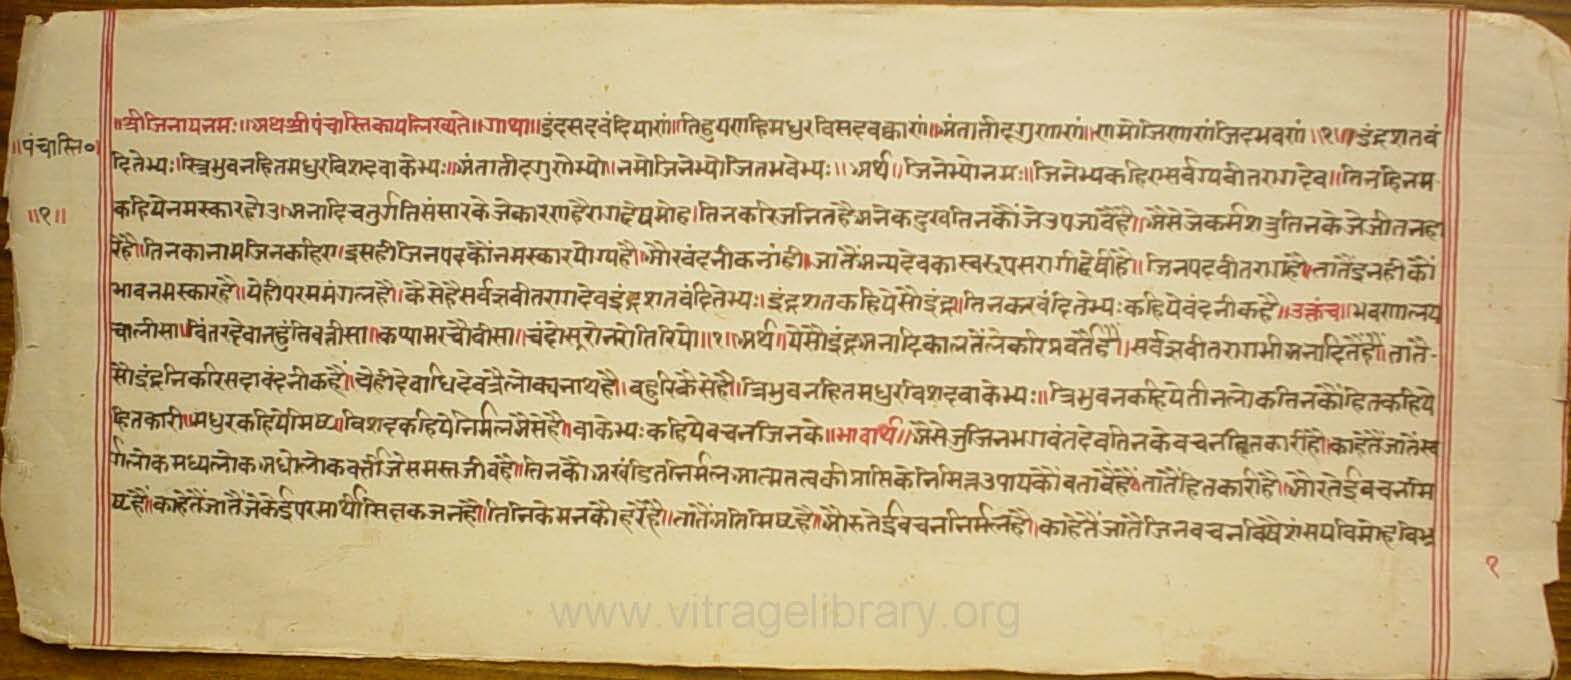 ॥श्रीजिनायनमः॥अथश्रीपंचास्तिकायलिख्यते॥गाथा॥इंदसदवंदियाणं॥तिहुयणहिमधुरविसदवक्काणं॥अंतातीदगुणाणं॥णमोजिणाणंजिदभवाणं॥१॥इंद्रशतवं
॥पंचास्ति०
दितेभ्यः॥स्त्रिभुवनहितमधुरविशदवाकेभ्यः॥अंतातीदगुणेभ्यो॥नमोजिनेभ्योजितभवेभ्यः॥अर्थ॥जिनेभ्योनमः॥जिनेभ्यकहिएसर्वग्यवीतरागदेव॥तिनहिनम
॥१॥
कहियेनमस्कारहोउ।अनादिचतुर्गतिसंसारकेजेकारणहैरागद्वेषमोह।तिनकरिजनितहैअनेकदुखतिनकौंजेउपजावैंहै॥अैसेजेकर्मशत्रुतिनकेजेजीतनहा
रेहै॥तिनकानामजिनकहिए।इसहीजिनपदकौंनमस्कारयोग्यहै॥औरवंदनीकनांही॥जातैंअन्यदेवकास्वरूपसरागीद्वेषीहै॥जिनपदवीतरागहै॥तातैंइनहीकौं
भावनमस्कारहै॥येहीपरममंगलहै॥कैसेहैसर्वज्ञवीतरागदेवइंद्रशतवंदितेभ्यः।इंद्रशतकहियेसौइंद्र॥तिनकरवंदितेभ्यःकहियेवंदनीकहै॥उक्तंच॥भवणालय
चालीसा॥विंतरदेवानहुंतिबत्तीसा॥कप्पामरचौवीसा॥चंदोसूरोनरोतिरियो॥१॥अर्थ॥येसौइंद्रअनादिकालतेंलेकरिप्रवर्तैंहैं॥सर्वज्ञवीतरागभीअनादितैंहैं॥तातै-
सौइंद्रनिकरिसदावंदनीकहैं॥येहीदेवाधिदेवत्रैलोक्यनाथहै॥बहुरिकैसेहै॥त्रिभुवनहितमधुरविशदवाकेभ्यः॥त्रिभुवनकहियेतीनलोकतिनकौंहितकहिये
हितकारी॥मधुरकहियेमिष्ट॥विशदकहियेनिर्मलअैसेहै॥वाकेभ्यःकहियेवचनजिनके॥भावार्थ॥अैसेजुजिनभगवंतदेवतिनकेवचनहितकारीहै॥काहेतैंजातैंस्व
र्गलोकमध्यलोकअधोलोकवर्तीजेसमस्तजीवहै॥तिनकौंअखंडितनिर्मलआत्मतत्वकीप्राप्तिकेनिमित्तउपायकौंबतावैंहैं॥तातैंहितकारीहै॥औरतेईवचनमि
ष्टहैं॥काहेतैंजातैंजेकेईपरमार्थीरसिकजनहै॥तिनिकेमनकौहरैहै॥तातैंअतिमिष्टहै॥औरुतेईवचननिर्मलहै।काहेतैंजातैंजिनवचनविषैशंसयविमोहविभ्र
१
www.vitragelibrary.org